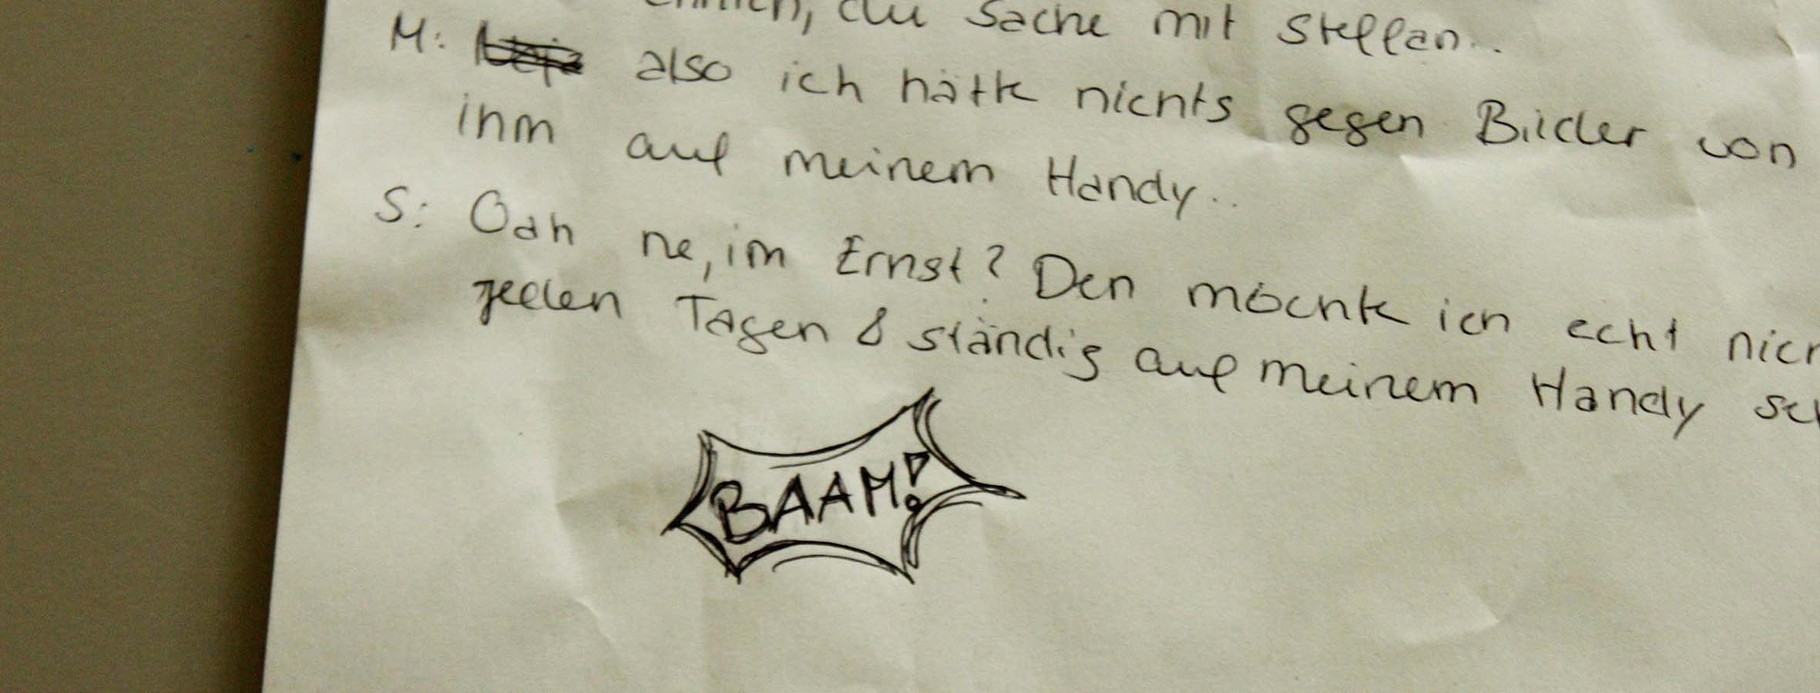 du Sache mit Stellan..
M: also ich hätte nichts gegen Bilder von
ihm auf meinem Handy..
S: Ooh ne, im Ernst? Den möchte ich echt
jeden Tagen & ständig auf meinem Handy
BAAM!